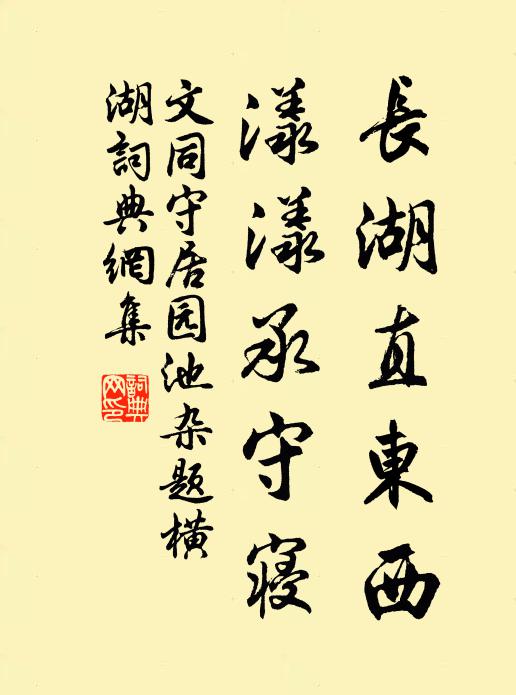 長湖直東西
漾漾承守寝
文同守居园池杂题橫
湖詞典網集
詞典
网印